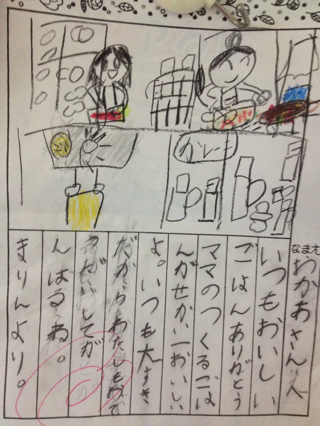 カレー
なまえ
おかあさんへ
いつもおいしい
ごはんありがとう
ママのつくるごは
んがせかい一おいしい
よ。いつも大すき
だからわたしもおて
してが
んばるね。
まりんより。